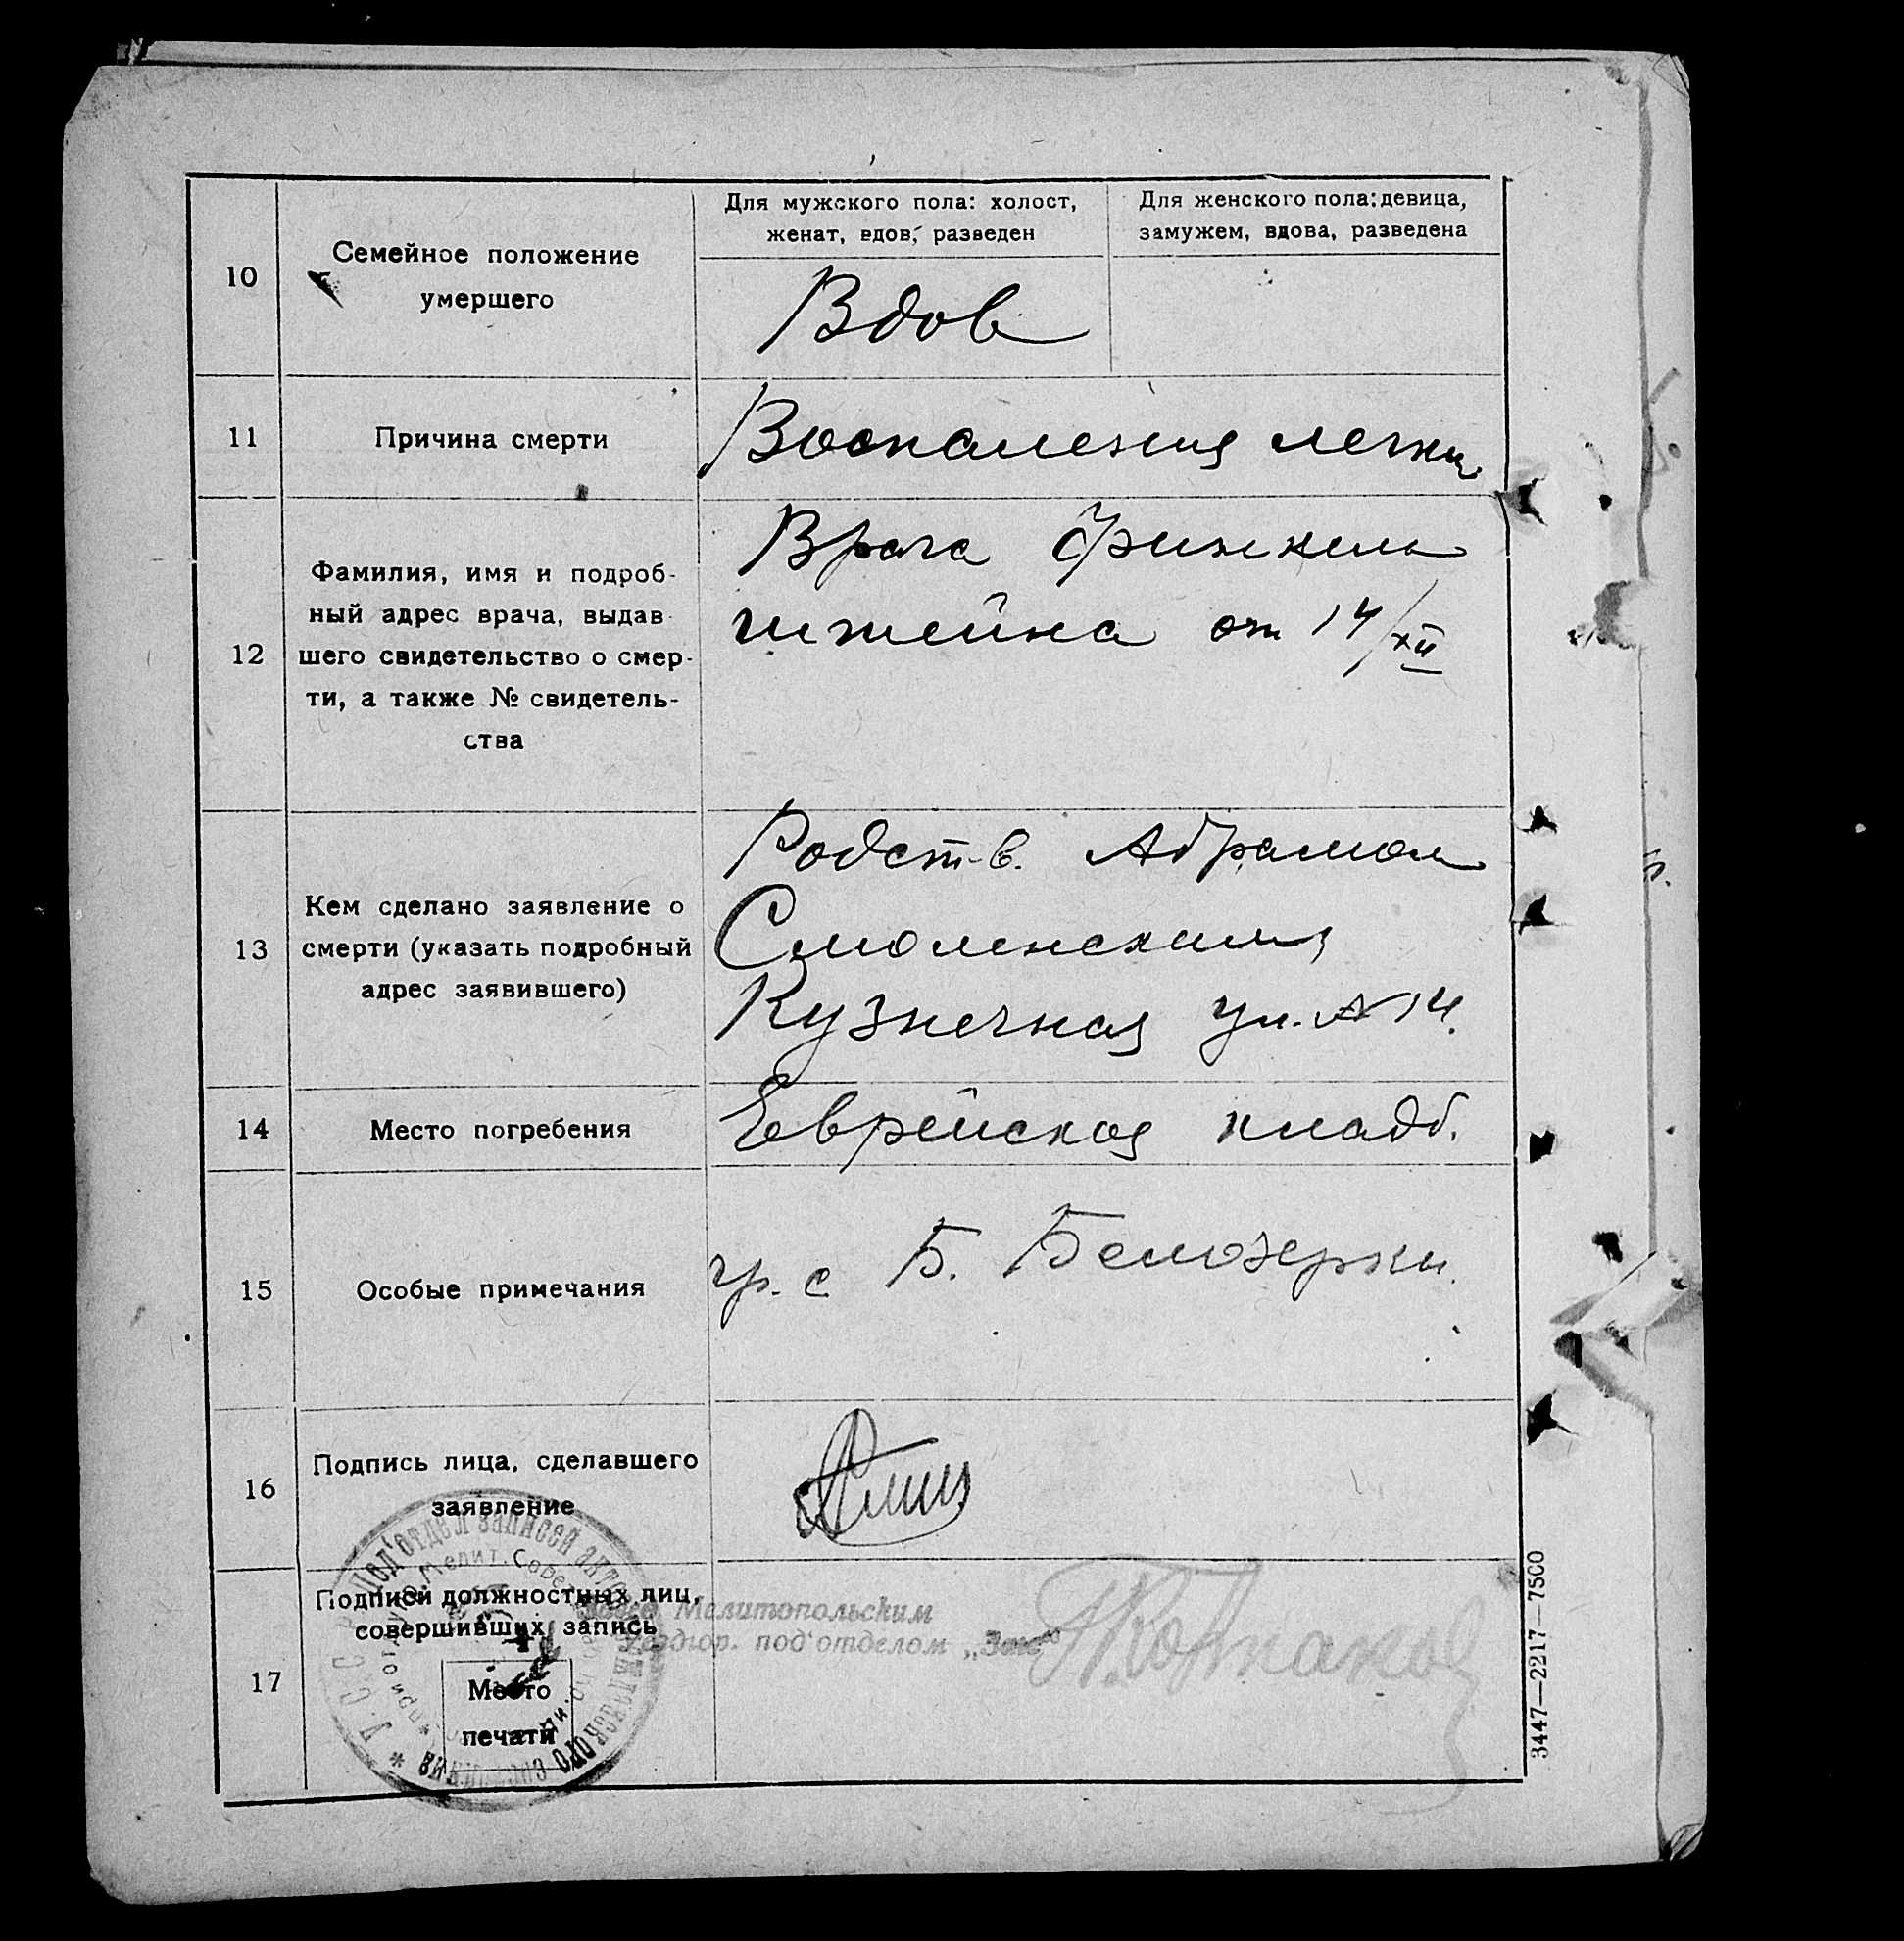 10
Семейное положение
умершего
Для мужского пола: холост,
женат, вдов, разведен
Для женского пола: девица,
замужем, вдова, разведена
Вдов
11
Причина смерти
Воспаления легких
12
Фамилия, имя и подроб-
ный адрес врача, выдав-
шего свидетельство о смер-
ти, а также № свидетель-
ства
Врача Финкель
штейна от 14/XII
13
Кем сделано заявление о
смерти (указать подробный
адрес заявившего)
Родств. Абрамом
Смоленским
Кузнечная ул. № 14.
14
Место погребения
Еврейская кладб.
15
Особые примечания
гр. с Б. Белозерки.
16
Подпись лица, сделавшего
заявление
17
Подписи должностных лиц,
совершивших запись
Место
печати
Мелитопольским
под'отделом „Загс"
под'отдел записей актов
3447—2217—7500